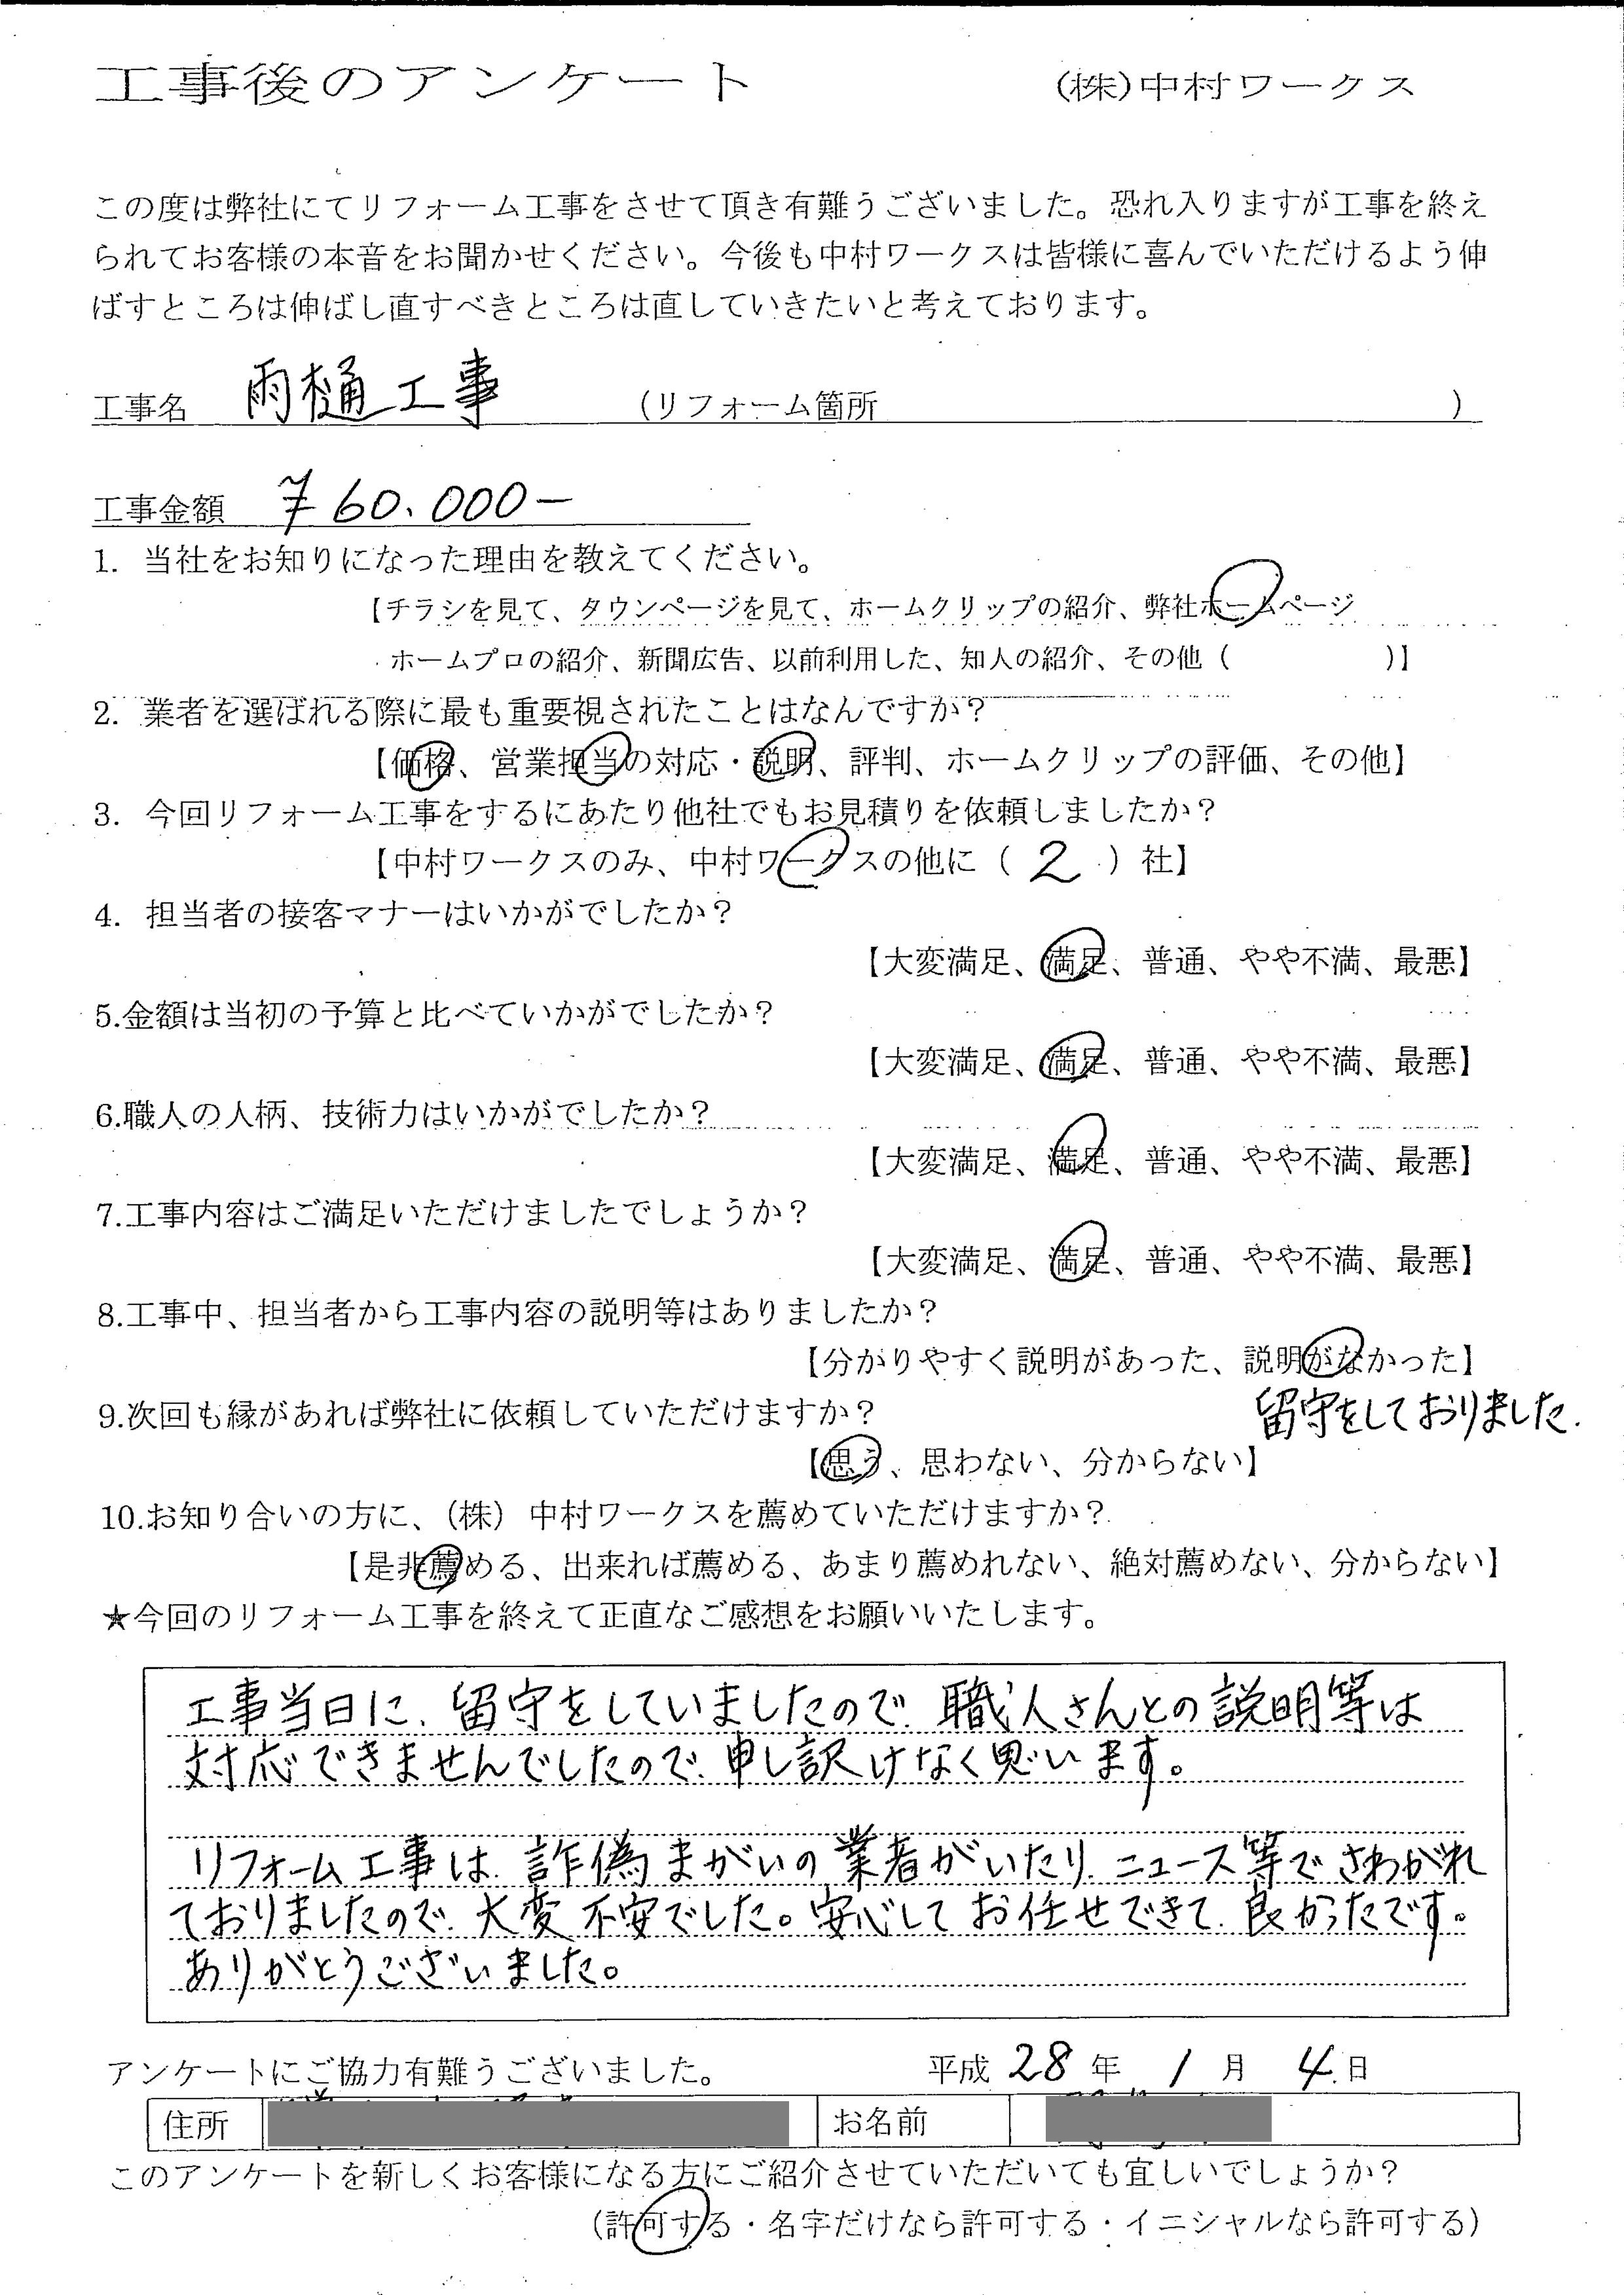 工事後のアンケート　(株)中村ワークス
この度は弊社にてリフォーム工事をさせて頂き有難うございました。恐れ入りますが工事を終え
られてお客様の本音をお聞かせください。今後も中村ワークスは皆様に喜んでいただけるよう伸
ばすところは伸ばし直すべきところは直していきたいと考えております。
工事名　雨樋工事　(リフォーム箇所　)
工事金額　¥60.000-
1. 当社をお知りになった理由を教えてください。
【チラシを見て、タウンページを見て、ホームクリップの紹介、弊社ホームページ
ホームプロの紹介、新聞広告、以前利用した、知人の紹介、その他（　）】
2. 業者を選ばれる際に最も重要視されたことはなんですか？
【価格、営業担当の対応・説明、評判、ホームクリップの評価、その他】
3. 今回リフォーム工事をするにあたり他社でもお見積りを依頼しましたか？
【中村ワークスのみ、中村ワークスの他に（ 2 ）社】
4. 担当者の接客マナーはいかがでしたか？
【大変満足、満足、普通、やや不満、最悪】
5.金額は当初の予算と比べていかがでしたか？
【大変満足、満足、普通、やや不満、最悪】
6.職人の人柄、技術力はいかがでしたか？
【大変満足、満足、普通、やや不満、最悪】
7.工事内容はご満足いただけましたでしょうか？
【大変満足、満足、普通、やや不満、最悪】
8.工事中、担当者から工事内容の説明等はありましたか？
【分かりやすく説明があった、説明がなかった】
9.次回も縁があれば弊社に依頼していただけますか？　留守をしておりました.
【思う、思わない、分からない】
10.お知り合いの方に、（株）中村ワークスを薦めていただけますか？
【是非薦める、出来れば薦める、あまり薦めれない、絶対薦めない、分からない】
★今回のリフォーム工事を終えて正直なご感想をお願いいたします。
工事当日に、留守をしていましたので、職人さんとの説明等は
対応できませんでしたので、申し訳けなく思います。
リフォーム工事は、詐偽まがいの業者がいたり、ニュース等でさわがれ
ておりましたので、大変不安でした。安心してお任せできて、良かったです。
ありがとうございました。
アンケートにご協力有難うございました。　平成 28 年 1 月 4 日
住所　お名前
このアンケートを新しくお客様になる方にご紹介させていただいても宜しいでしょうか？
（許可する・名字だけなら許可する・イニシャルなら許可する）